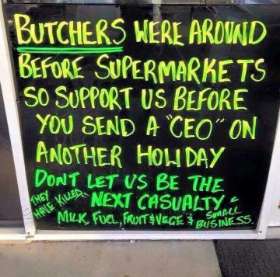 BUTCHERS WERE AROUND
BEFORE SUPERMARKETS
SO SUPPORT US BEFORE
YOU SEND A "CEO" ON
ANOTHER HOLIDAY
DONT LET US BE THE
NEXT CASUALTY
THEY HAVE KILLED
MILK, FUEL, FRUIT & VEGE & SMALL BUSINESS